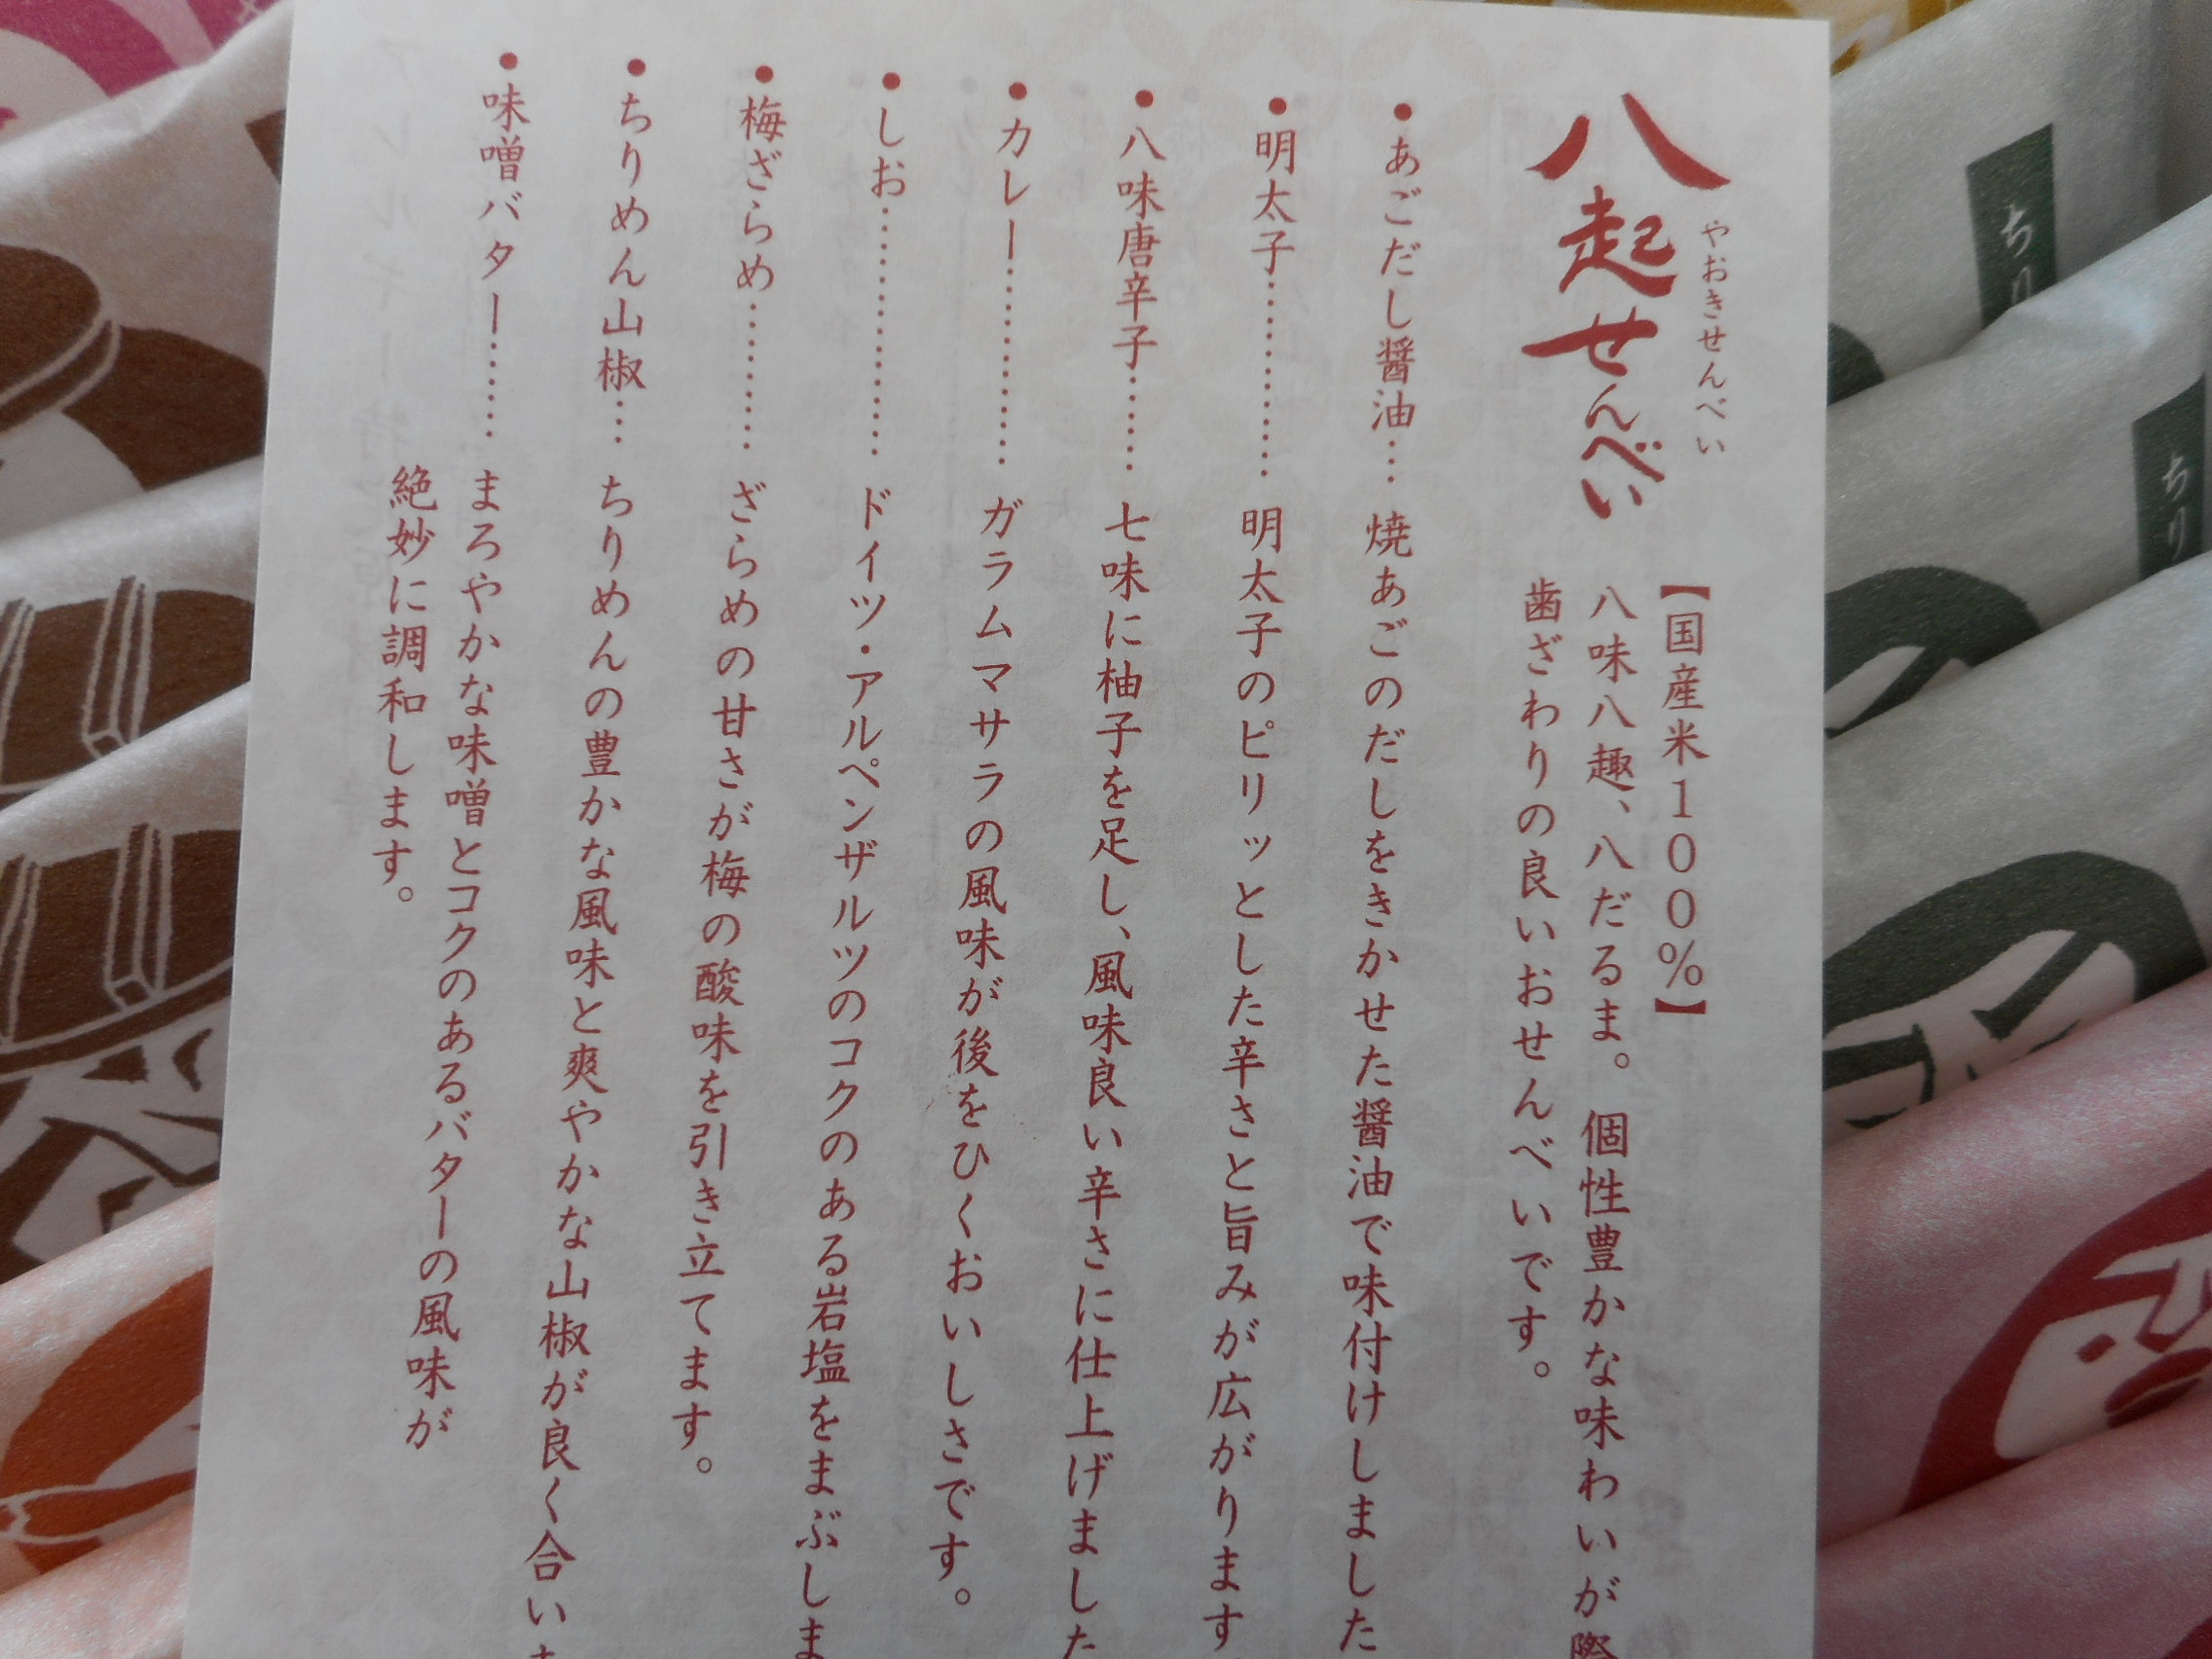 八起せんべい
やおきせんべい
【国産米100％】
八味八趣、八だるま。個性豊かな味わいが際
歯ざわりの良いおせんべいです。
●あごだし醤油…焼あごのだしをきかせた醤油で味付けしました
●明太子…………明太子のピリッとした辛さと旨みが広がります
●八味唐辛子……七味に柚子を足し、風味良い辛さに仕上げました
●カレー…………ガラムマサラの風味が後をひくおいしさです。
●しお……………ドイツ・アルペンザルツのコクのある岩塩をまぶしま
●梅ざらめ………ざらめの甘さが梅の酸味を引き立てます。
●ちりめん山椒…ちりめんの豊かな風味と爽やかな山椒が良く合いま
●味噌バター……まろやかな味噌とコクのあるバターの風味が
絶妙に調和します。
ちり
ちり